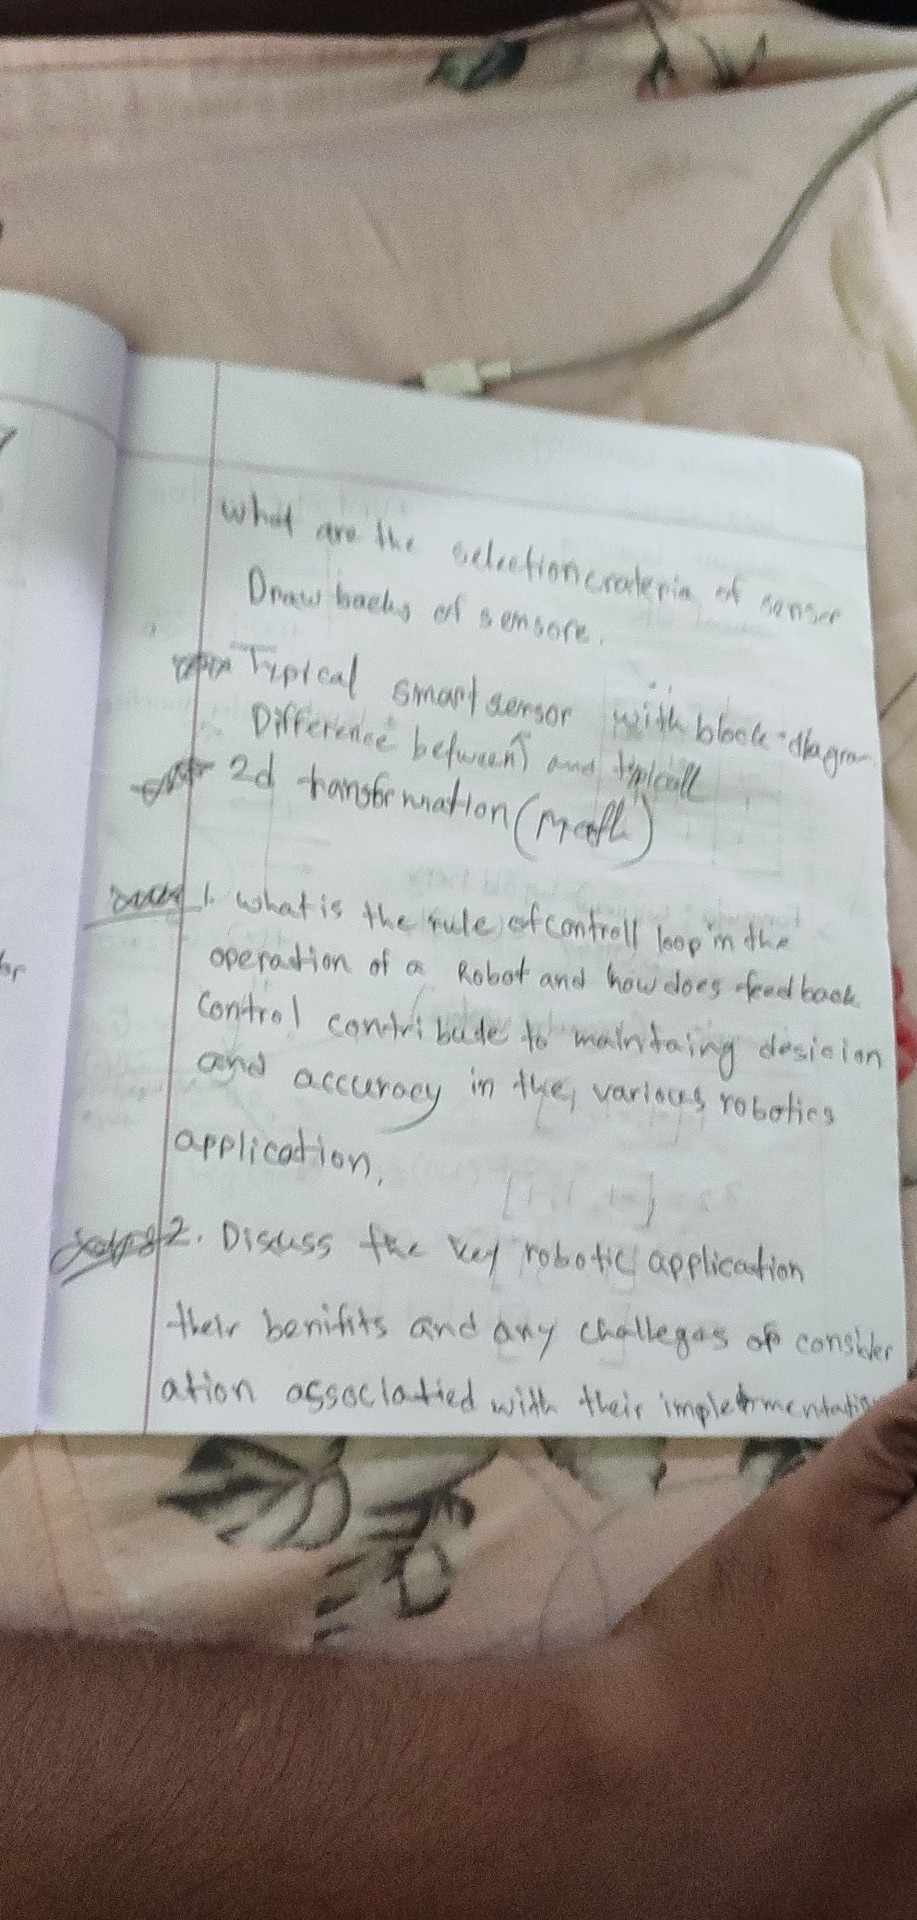 what are the selection crateria of senser
Draw backs of sensore.
Typical smart sensor with block diagram
Difference between and tipicall
2d transformation (Math)
1. what is the rule of controll loop in the
operation of a Robot and how does feedback
Control contribude to maintaing desicion
and accuracy in the, various robotics
application.
2. Discuss the key robotic application
their benifits and any challeges of consider
ation associatied with their implementation